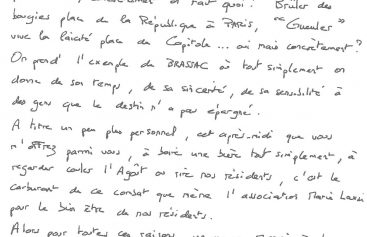 faut quoi ? Brûler des
bougies place de la République à PARIS, "Gueuler"
vive la laïcité place du Capitole... oui mais concrètement ?
On prend l'exemple du BRASSAC où tout simplement on
donne de son temps, de sa sincérité, de sa sensibilité à
des gens que le destin n'a pas épargné.
A titre un peu plus personnel, cet après-midi que vous
m'offrez parmi vous, à boire une bière tout simplement, à
regarder couler l'Agoût ou rire nos résidents, c'est le
carburant de ce combat que mène l'association Marie Louise
pour le bien être de nos résidents.
Alors pour toutes ces raisons